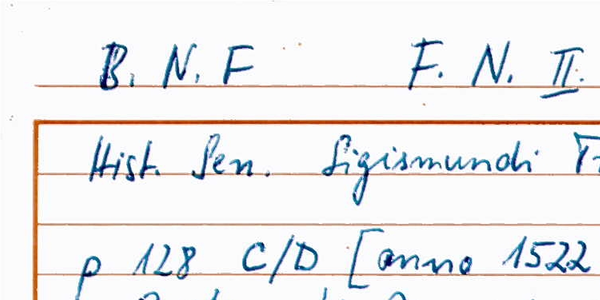 B. N. F F. N. II.
Hist. Sen. Sigismundi
p 128 C/D [anno 1522